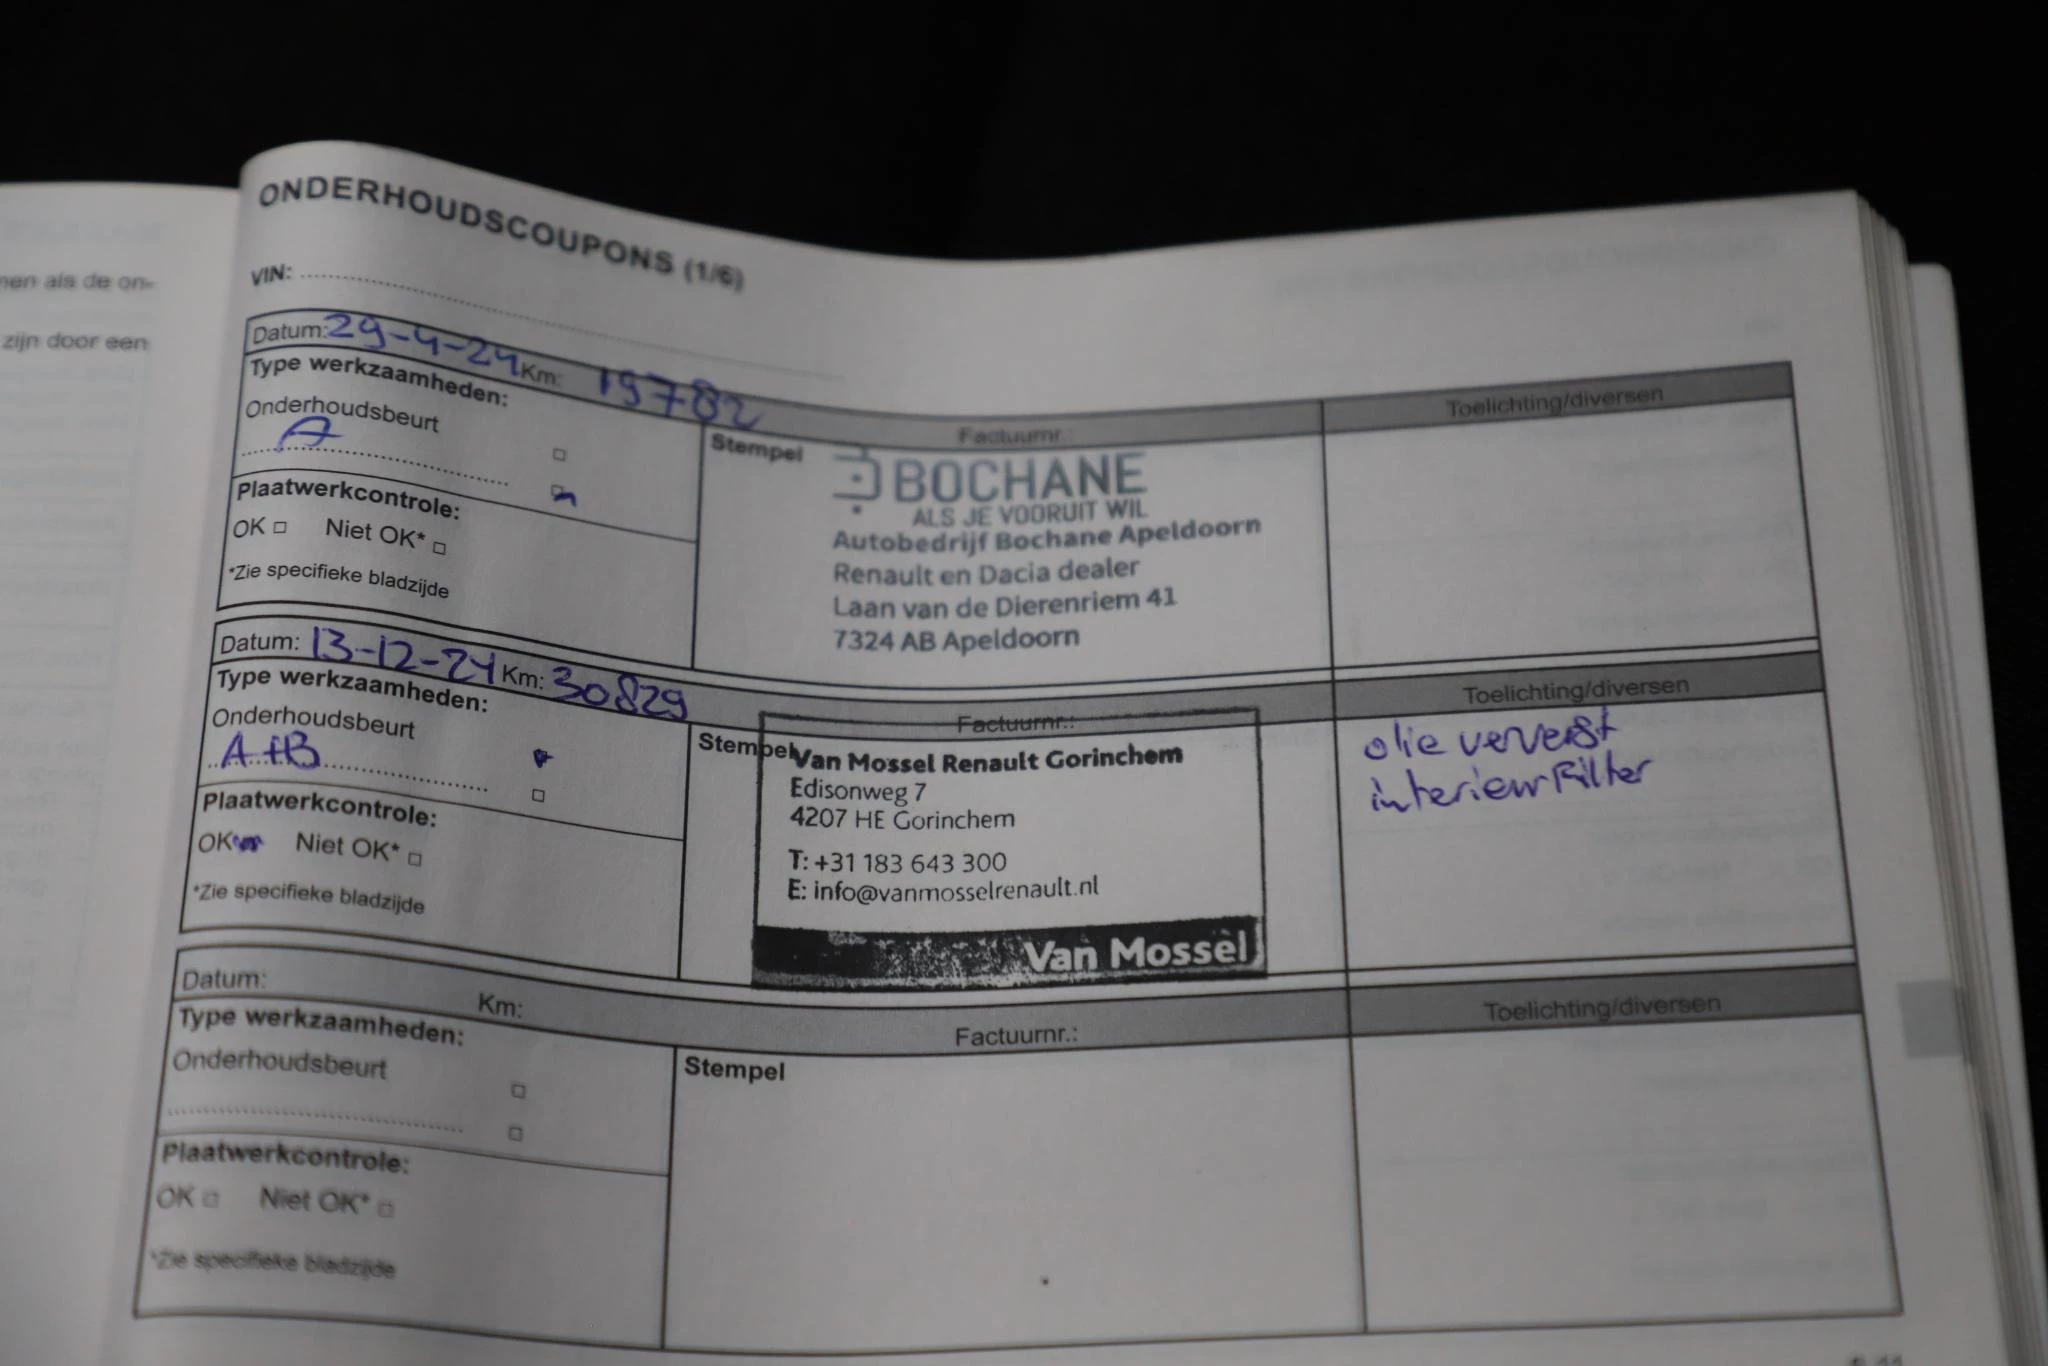 nen als de on-
zijn door een
ONDERHOUDSCOUPONS (1/6)
VIN:
Datum: 29-4-24 Km: 19782
Type werkzaamheden:
Onderhoudsbeurt
A
Plaatwerkcontrole:
OK Niet OK*
*Zie specifieke bladzijde
Factuurnr.:
Stempel
BOCHANE
ALS JE VOORUIT WIL
Autobedrijf Bochane Apeldoorn
Renault en Dacia dealer
Laan van de Dierenriem 41
7324 AB Apeldoorn
Toelichting/diversen
Datum: 13-12-24 Km: 30829
Type werkzaamheden:
Onderhoudsbeurt
A+B
Plaatwerkcontrole:
OK Niet OK*
*Zie specifieke bladzijde
Factuurnr.:
Stempel
Van Mossel Renault Gorinchem
Edisonweg 7
4207 HE Gorinchem
T: +31 183 643 300
E: info@vanmosselrenault.nl
Van Mossel
Toelichting/diversen
olie ververst
interieur Filter
Datum:
Km:
Type werkzaamheden:
Onderhoudsbeurt
Plaatwerkcontrole:
OK Niet OK*
*Zie specifieke bladzijde
Factuurnr.:
Stempel
Toelichting/diversen